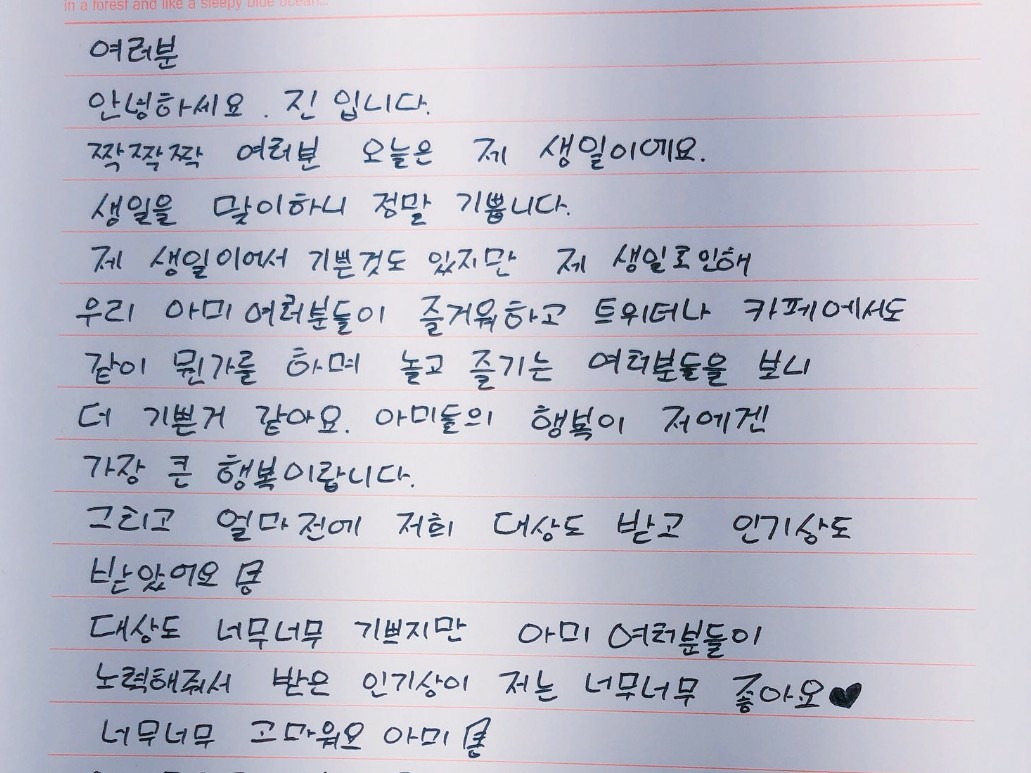 in a forest and like a sleepy blue ocean...
여러분
안녕하세요. 진 입니다.
짝짝짝 여러분 오늘은 제 생일이에요.
생일을 맞이하니 정말 기쁩니다.
제 생일이어서 기쁜것도 있지만 제 생일로인해
우리 아미 여러분들이 즐거워하고 트위터나 카페에서도
같이 뭔가를 하며 놀고 즐기는 여러분들을 보니
더 기쁜거 같아요. 아미들의 행복이 저에겐
가장 큰 행복이랍니다.
그리고 얼마전에 저희 대상도 받고 인기상도
받았어요
대상도 너무너무 기쁘지만 아미 여러분들이
노력해줘서 받은 인기상이 저는 너무너무 좋아요♥
너무너무 고마워요 아미